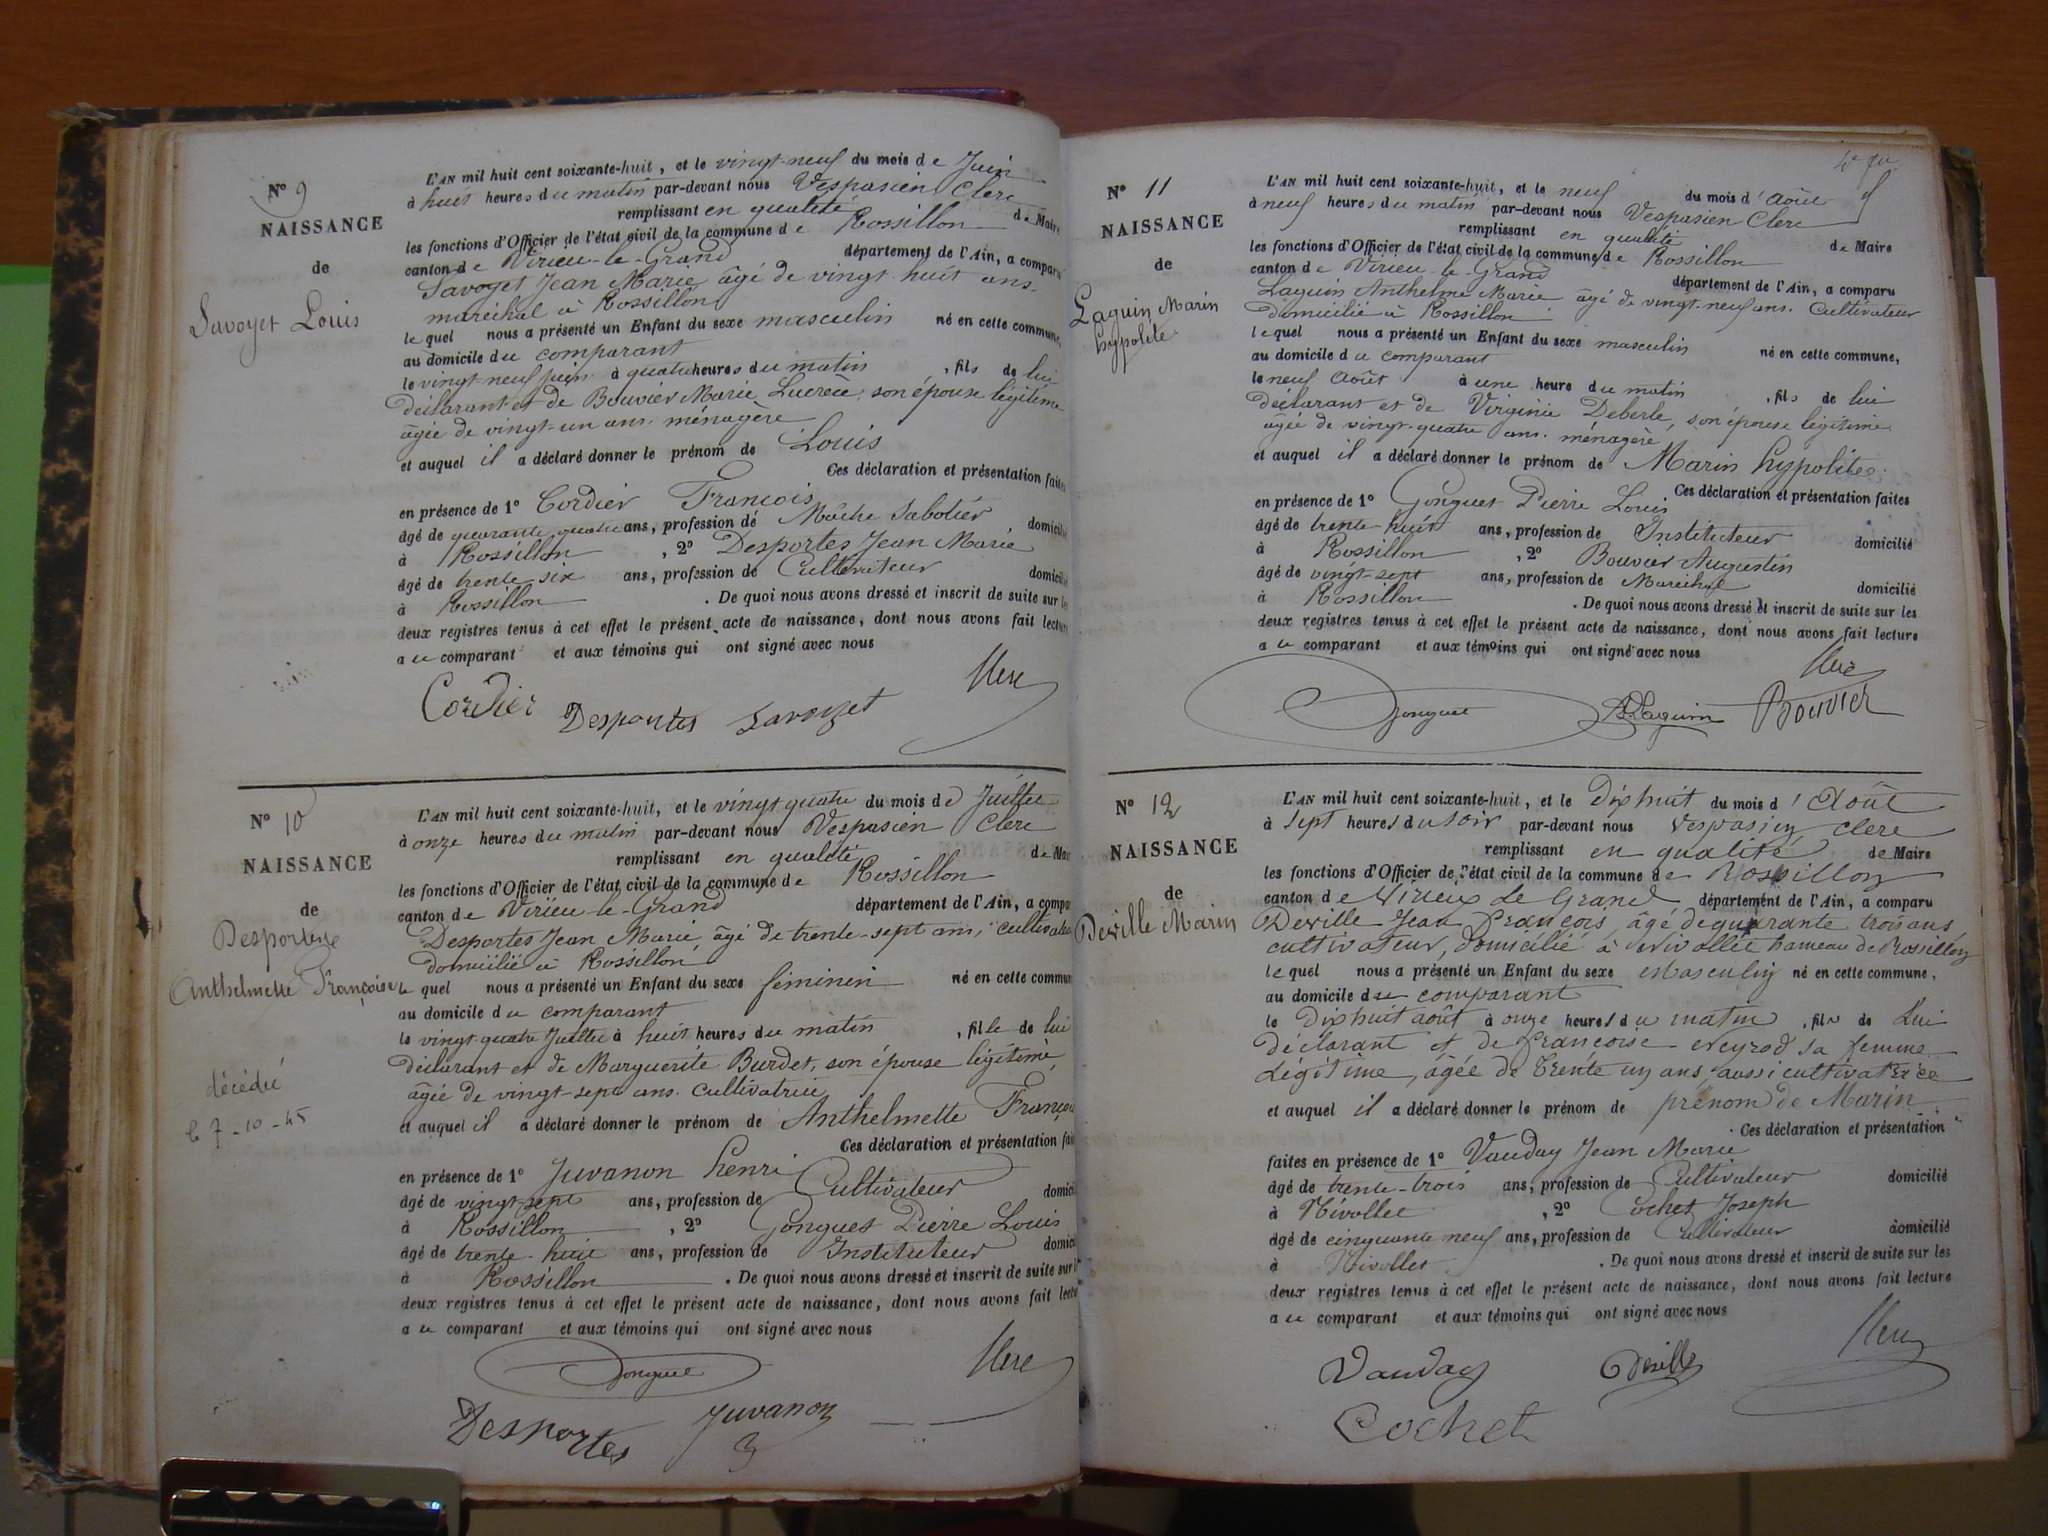 N° 9
NAISSANCE
de
Savoyet Louis
L'AN mil huit cent soixante-huit, et le vingt-neuf du mois de Juin
à huit heures du matin par-devant nous Vespasien Clerc
remplissant en qualité de Maire
les fonctions d'Officier de l'état civil de la commune de Rossillon
canton de Virieu-le-Grand département de l'Ain, a comparu
Savoyet Jean Marie âgé de vingt-huit ans.
maréchal à Rossillon
lequel nous a présenté un Enfant du sexe masculin né en cette commune,
au domicile du comparant
le vingt-neuf juin à quatre heures du matin, fils de lui
déclarant et de Bouvier Marie Lucrèce, son épouse légitime
âgée de vingt-un ans. ménagère
et auquel il a déclaré donner le prénom de Louis
Ces déclaration et présentation faites
en présence de 1° Cordier François
âgé de quarante quatre ans, profession de Sabotier domicilié
à Rossillon, 2° Desportes Jean Marie
âgé de trente six ans, profession de Cultivateur domicilié
à Rossillon. De quoi nous avons dressé et inscrit de suite sur les
deux registres tenus à cet effet le présent acte de naissance, dont nous avons fait lecture
au comparant et aux témoins qui ont signé avec nous
Clerc
Cordier Desportes Savoyet
N° 10
NAISSANCE
de
Desportes
Anthelmette Françoise
décédée
le 7-10-45
L'AN mil huit cent soixante-huit, et le vingt quatre du mois de Juillet
à onze heures du matin par-devant nous Vespasien Clerc
remplissant en qualité de Maire
les fonctions d'Officier de l'état civil de la commune de Rossillon
canton de Virieu-le-Grand département de l'Ain, a comparu
Desportes Jean Marie, âgé de trente-sept ans, cultivateur
domicilié à Rossillon
lequel nous a présenté un Enfant du sexe féminin né en cette commune
au domicile du comparant
le vingt quatre Juillet à huit heures du matin, fille de lui
déclarant et de Marguerite Burdet, son épouse légitime,
âgée de vingt-sept ans. Cultivatrice
et auquel il a déclaré donner le prénom de Anthelmette Françoise
Ces déclaration et présentation faites
en présence de 1° Juvanon henri
âgé de vingt-sept ans, profession de Cultivateur domicilié
à Rossillon, 2° Gonguet Pierre Louis
âgé de trente-huit ans, profession de Instituteur domicilié
à Rossillon. De quoi nous avons dressé et inscrit de suite sur les
deux registres tenus à cet effet le présent acte de naissance, dont nous avons fait lecture
au comparant et aux témoins qui ont signé avec nous
Gonguet Clerc
Desportes Juvanon
N° 11
NAISSANCE
de
Laguin Marin
hypolite
L'AN mil huit cent soixante-huit, et le neuf du mois d'Août
à neuf heures du matin par-devant nous Vespasien Clerc
remplissant en qualité de Maire
les fonctions d'Officier de l'état civil de la commune de Rossillon
canton de Virieu-le-Grand département de l'Ain, a comparu
Laguin Anthelme Marie âgé de vingt-neuf ans. Cultivateur
domicilié à Rossillon
lequel nous a présenté un Enfant du sexe masculin né en cette commune,
au domicile du comparant
le neuf Août à une heure du matin, fils de lui
déclarant et de Virginie Deberle, son épouse légitime
âgée de vingt-quatre ans. ménagère
et auquel il a déclaré donner le prénom de Marin hypolite.
Ces déclaration et présentation faites
en présence de 1° Gonguet Pierre Louis
âgé de trente-huit ans, profession de Instituteur domicilié
à Rossillon, 2° Bouvier Augustin
âgé de vingt-sept ans, profession de Maréchal domicilié
à Rossillon. De quoi nous avons dressé et inscrit de suite sur les
deux registres tenus à cet effet le présent acte de naissance, dont nous avons fait lecture
au comparant et aux témoins qui ont signé avec nous
Clerc
Gonguet Laguin Bouvier
N° 12
NAISSANCE
de
Deville Marin
L'AN mil huit cent soixante-huit, et le Dix huit du mois d'Août
à sept heures du soir par-devant nous Vespasien Clerc
remplissant en qualité de Maire
les fonctions d'Officier de l'état civil de la commune de Rossillon
canton de Virieu Le Grand département de l'Ain, a comparu
Deville Jean François, âgé de quarante trois ans,
cultivateur, domicilié à hameau de Rossillon
lequel nous a présenté un Enfant du sexe Masculin né en cette commune,
au domicile du comparant
le Dix huit août à onze heures du matin, fils de Lui
déclarant et de Françoise Neyrod sa femme
Légitime, âgée de Trente un ans, aussi cultivatrice
et auquel il a déclaré donner le prénom de prénom de Marin
Ces déclaration et présentation
faites en présence de 1° Vauday Jean Marie
âgé de trente-trois ans, profession de Cultivateur domicilié
à Nivollet, 2° Cochet Joseph
âgé de cinquante neuf ans, profession de Cultivateur domicilié
à Nivollet. De quoi nous avons dressé et inscrit de suite sur les
deux registres tenus à cet effet le présent acte de naissance, dont nous avons fait lecture
au comparant et aux témoins qui ont signé avec nous
Clerc
Vauday Deville
Cochet